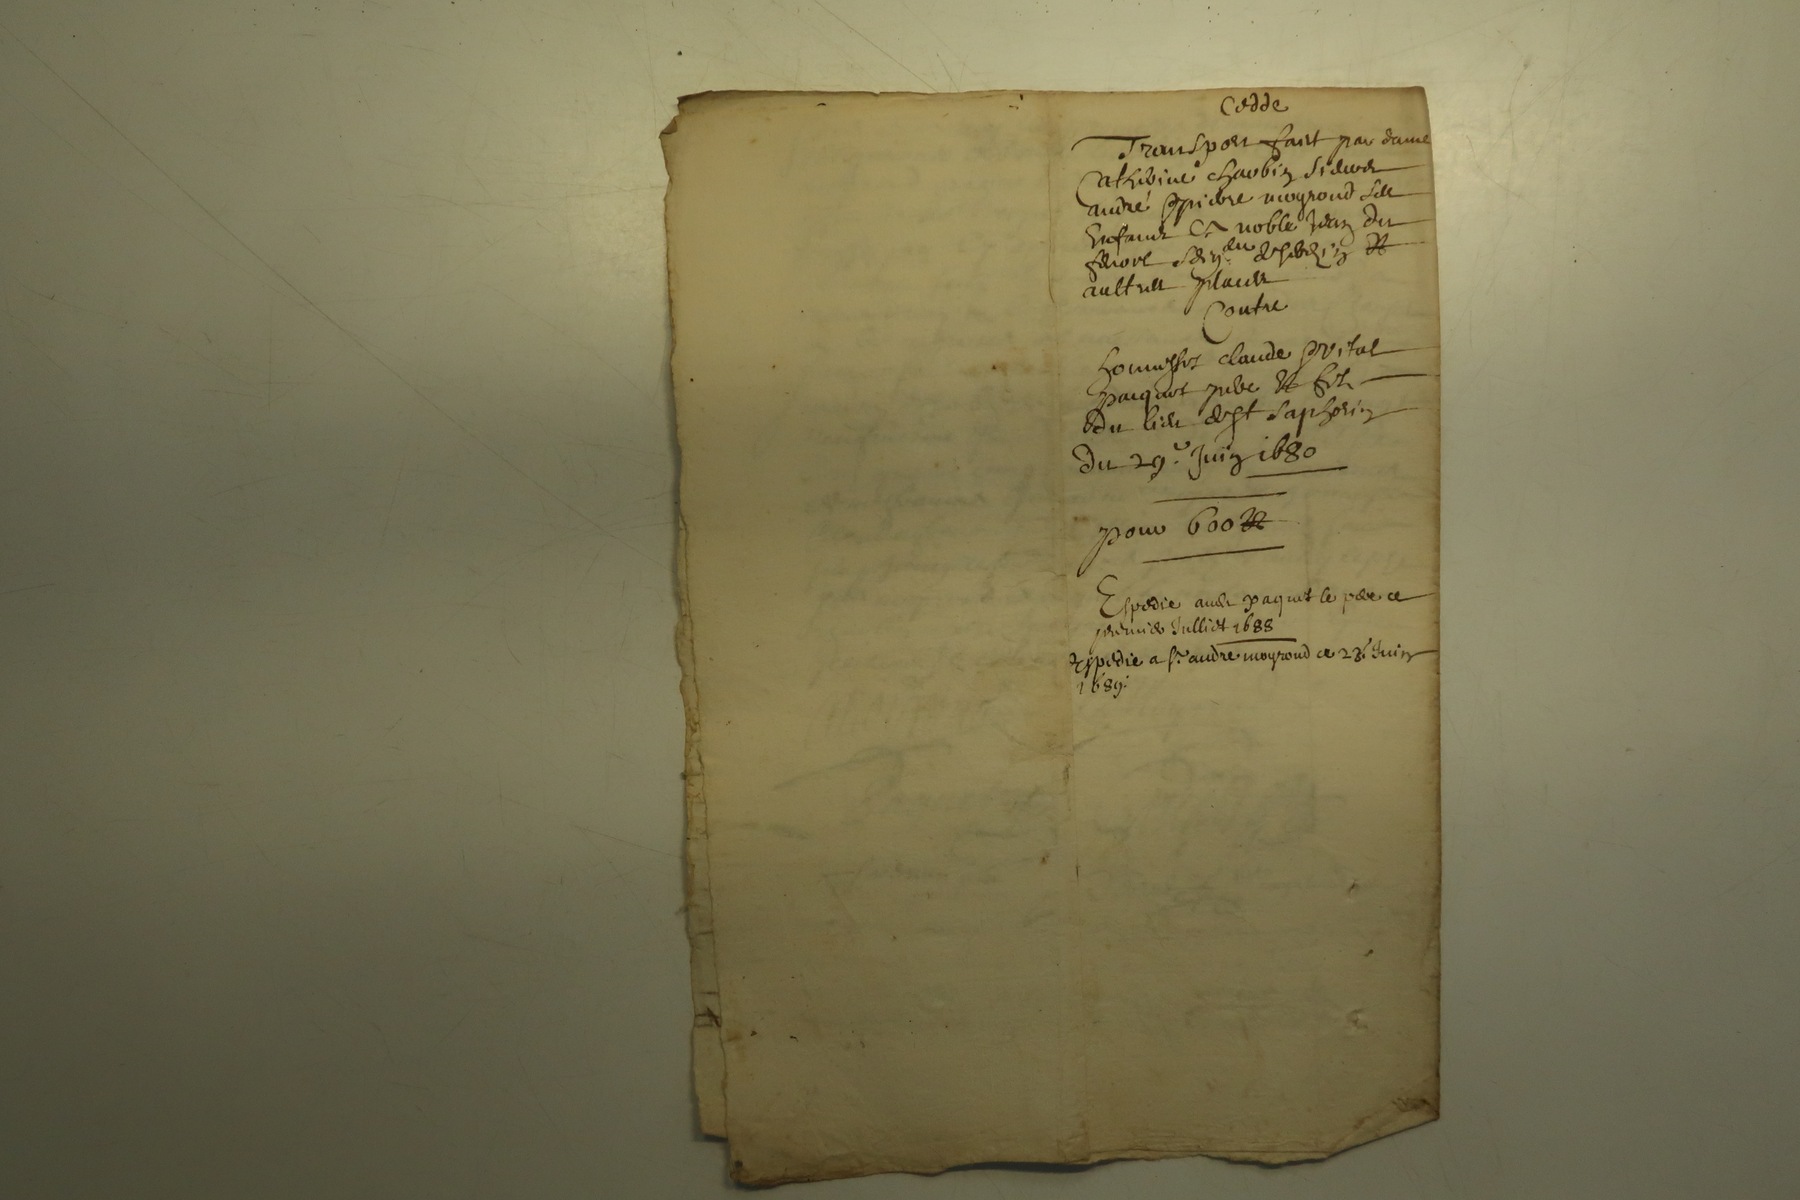 Cedde
Transport fait par dame
Catherine Charbin sieurs
andre pierre moyroud ses
Enfans Et noble Jean du
Seig.eur et
aultres places
Contre
honnestes claude vital
paquet pere et fils
du lieu de st saphorin
Du 29.e Juin 1680
pour 600 tt
Expedie audt paquet le pere ce
premier Julliet 1688
Expedie a sr. andre moyroud ce 28e Juin
1689.